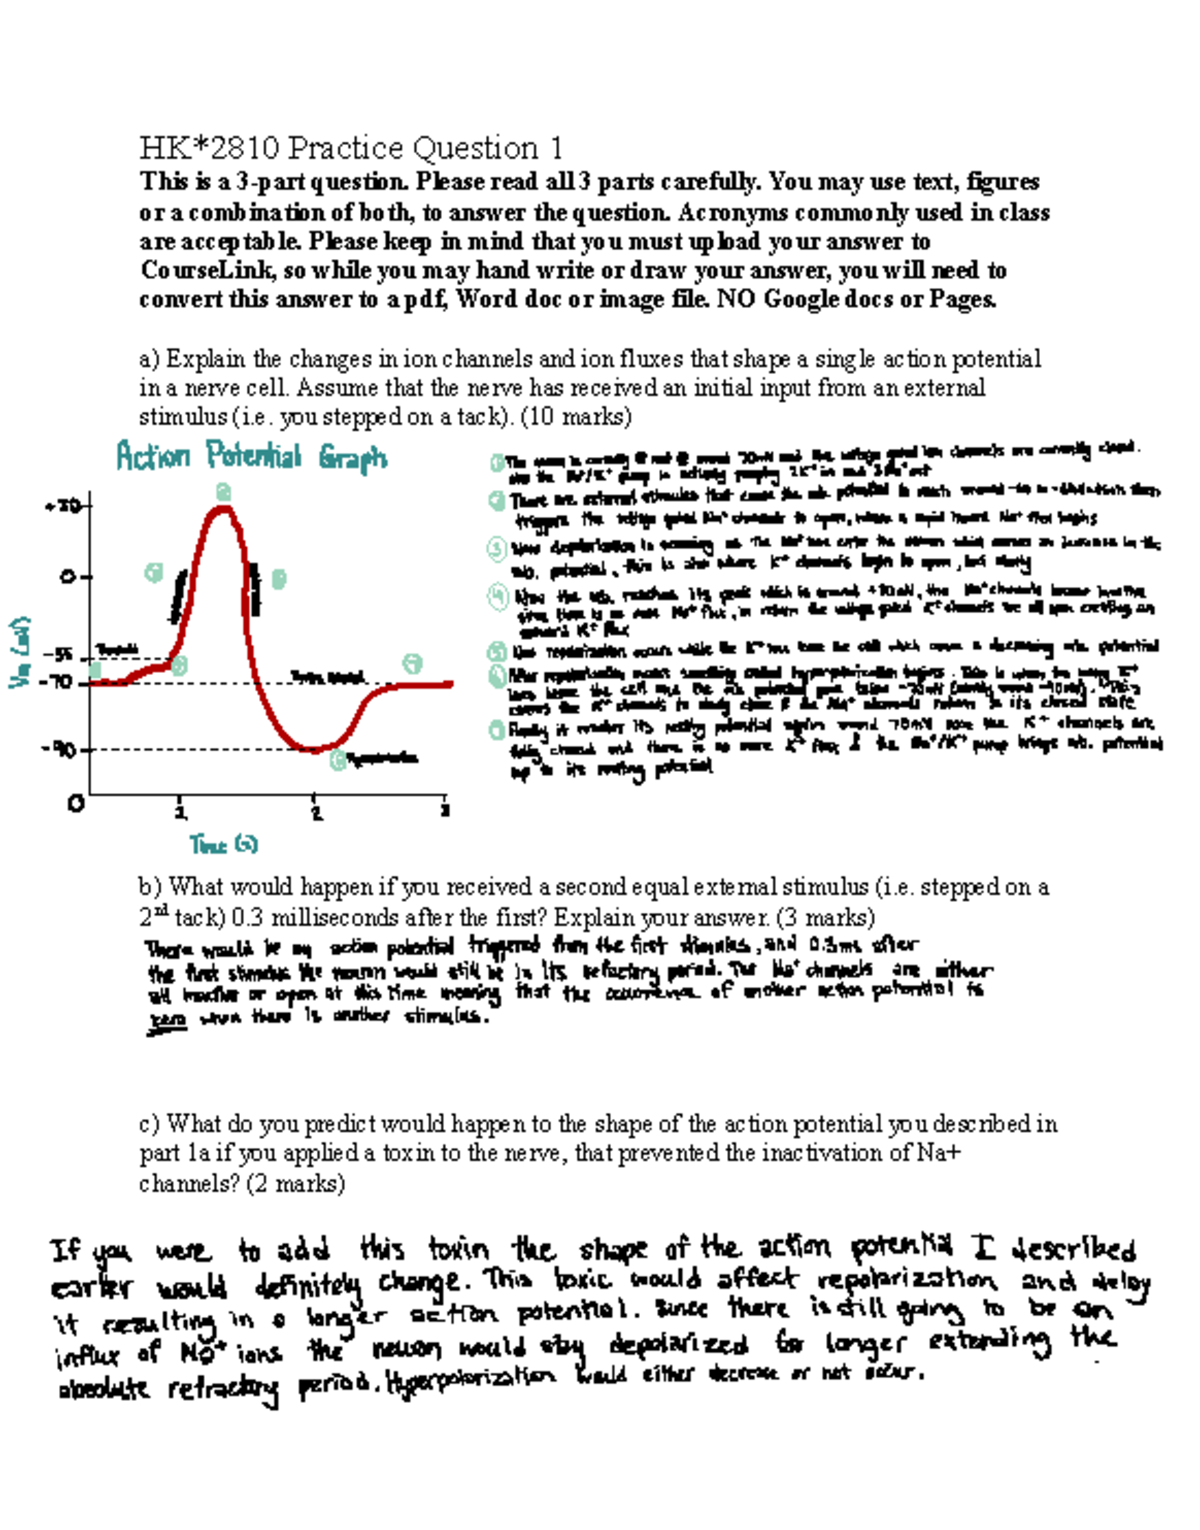 HK*2810 Practice Question 1
This is a 3-part question. Please read all 3 parts carefully. You may use text, figures
or a combination of both, to answer the question. Acronyms commonly used in class
are acceptable. Please keep in mind that you must upload your answer to
CourseLink, so while you may hand write or draw your answer, you will need to
convert this answer to a pdf, Word doc or image file. NO Google docs or Pages.
a) Explain the changes in ion channels and ion fluxes that shape a single action potential
in a nerve cell. Assume that the nerve has received an initial input from an external
stimulus (i.e. you stepped on a tack). (10 marks)
Action Potential Graph
+30
0
-55
-70
-90
0
1
2
3
Vm (mV)
Time (s)
Threshold
Hyperpolarization
There are external stimulus that cause the potential to reach around
triggers the voltage gated Na+ channels to open, where a rapid inward Na+ flux begins
Now depolarization is occurring as the Na+ ions enter the neuron which causes an increase in the
potential, this is also where K+ channels begin to open, but slowly
Now the reaches its peak which is around +30mV, the Na+ channels become
there is no more Na+ flux, in return the voltage gated K+ channels are all open creating an
outward K+ flux
Now repolarization occurs while the K+ ions leave the cell which causes a decreasing potential
After repolarization occurs something called hyperpolarization begins. This is when too many K+
ions leave the cell and the potential goes below -70mV
causes the K+ channels to slowly close & the Na+ channels return to its closed state
Finally it reaches its resting potential again around -70mV once the K+ channels are
fully closed and there is no more K+ flux & the Na+/K+ pump brings potential
up to its resting potential
b) What would happen if you received a second equal external stimulus (i.e. stepped on a
2nd tack) 0.3 milliseconds after the first? Explain your answer. (3 marks)
There would be an action potential triggered from the first stimulus, and 0.3ms after
the first stimulus the neuron would still be in its refactory period. The Na+ channels are either
all inactive or open at this time meaning that the occurrence of another action potential is
zero when there is another stimulus.
c) What do you predict would happen to the shape of the action potential you described in
part 1a if you applied a toxin to the nerve, that prevented the inactivation of Na+
channels? (2 marks)
If you were to add this toxin the shape of the action potential I described
earlier would definitely change. This toxic would affect repolarization and delay
it resulting in a longer action potential. Since there is still going to be an
influx of Na+ ions the neuron would stay depolarized for longer extending the
absolute refractory period. Hyperpolarization would either decrease or not occur.